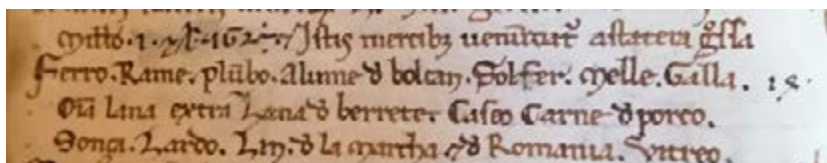 Istis mercibȝ uenūdr̃ astatera gͦssa
Ferro. Rame. plūbo. Alume d bolcan. Solfer. Melle. Galla.
Oīa lana extra Lana d berrete. Caseo Carne d porco.
Songa. Lardo. Lin. d la marcha ⁊ d Romania. Vitreo.